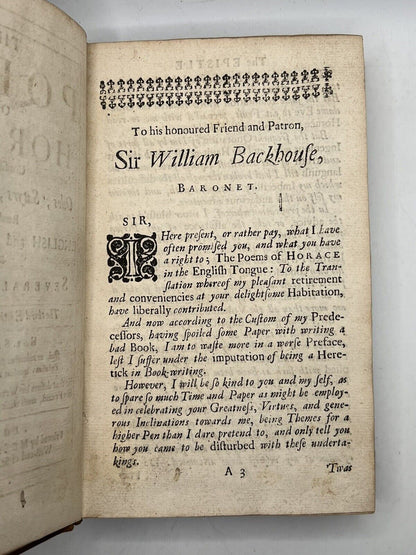 The EPISTLE
To his honoured Friend and Patron,
Sir William Backhouſe,
BARONET.
SIR,
I Here preſent, or rather pay, what I have
often promiſed you, and what you have
a right to; The Poems of HORACE
in the Engliſh Tongue: To the Tran-
ſlation whereof my pleaſant retirement
and conveniencies at your delightſome Habitation,
have liberally contributed.
And now according to the Cuſtom of my Prede-
ceſſors, having ſpoiled ſome Paper with writing a
bad Book, I am to waſte more in a worſe Preface,
leſt I ſuffer under the imputation of being a Here-
tick in Book-writing.
However, I will be ſo kind to you and my ſelf, as
to ſpare ſo much Time and Paper as might be employ-
ed in celebrating your Greatneſs, Virtues, and gene-
rous Inclinations towards me, being Themes for a
higher Pen than I dare pretend to, and only tell you
how you came to be diſturbed with theſe underta-
kings.
A 3
'Twas